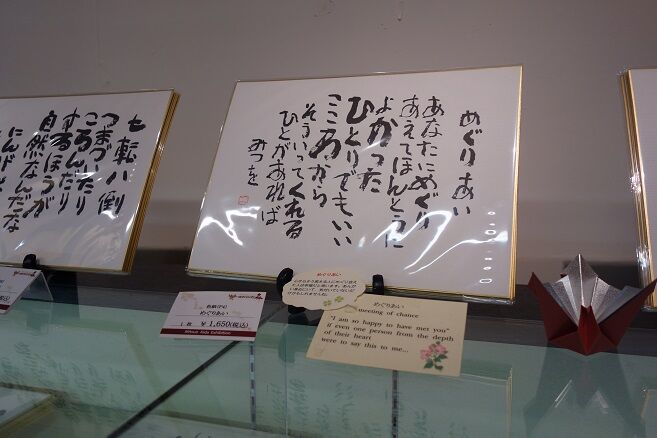 めぐりあい
あなたにめぐり
あえてほんとうに
よかった
ひとりでもいい
こころから
そういってくれる
ひとがあれば
みつを
も
転八倒
つまづいたり
ころんだり
するほうが
自然なんだな
めぐりあい
めぐりあい
meeting of chance
"I am so happy to have met you"
if even one person from the depth
of their heart
were to say this to me...
色紙(P4)
めぐりあい
1枚 ¥1,650(税込)
Mitsuo Aida Exhibition